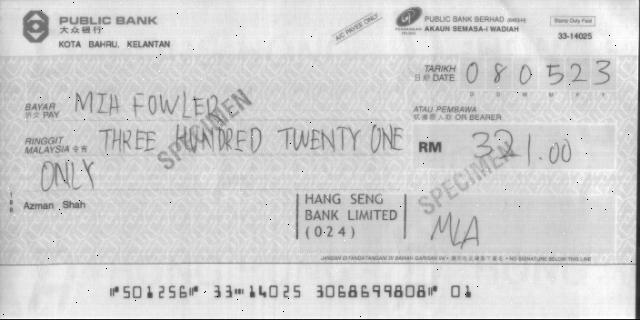 PUBLIC BANK
大众银行
KOTA BAHRU, KELANTAN
A/C PAYEE ONLY
PUBLIC BANK BERHAD
AKAUN SEMASA-i WADIAH
Stamp Duty Paid
33-14025
TARIKH
日期 DATE 080523
D D M M Y Y
BAYAR
PAY MIA FOWLER
ATAU PEMBAWA
OR BEARER
RINGGIT
MALAYSIA THREE HUNDRED TWENTY ONE
ONLY
RM 321.00
SPECIMEN
SPECIMEN
Azman Shah
HANG SENG
BANK LIMITED
(024)
MIA
JANGAN DITANDATANGAN DI BAWAH GARISAN INI • NO SIGNATURE BELOW THIS LINE
⑈501256⑈ 33⑉14025 3068699808⑈ 01